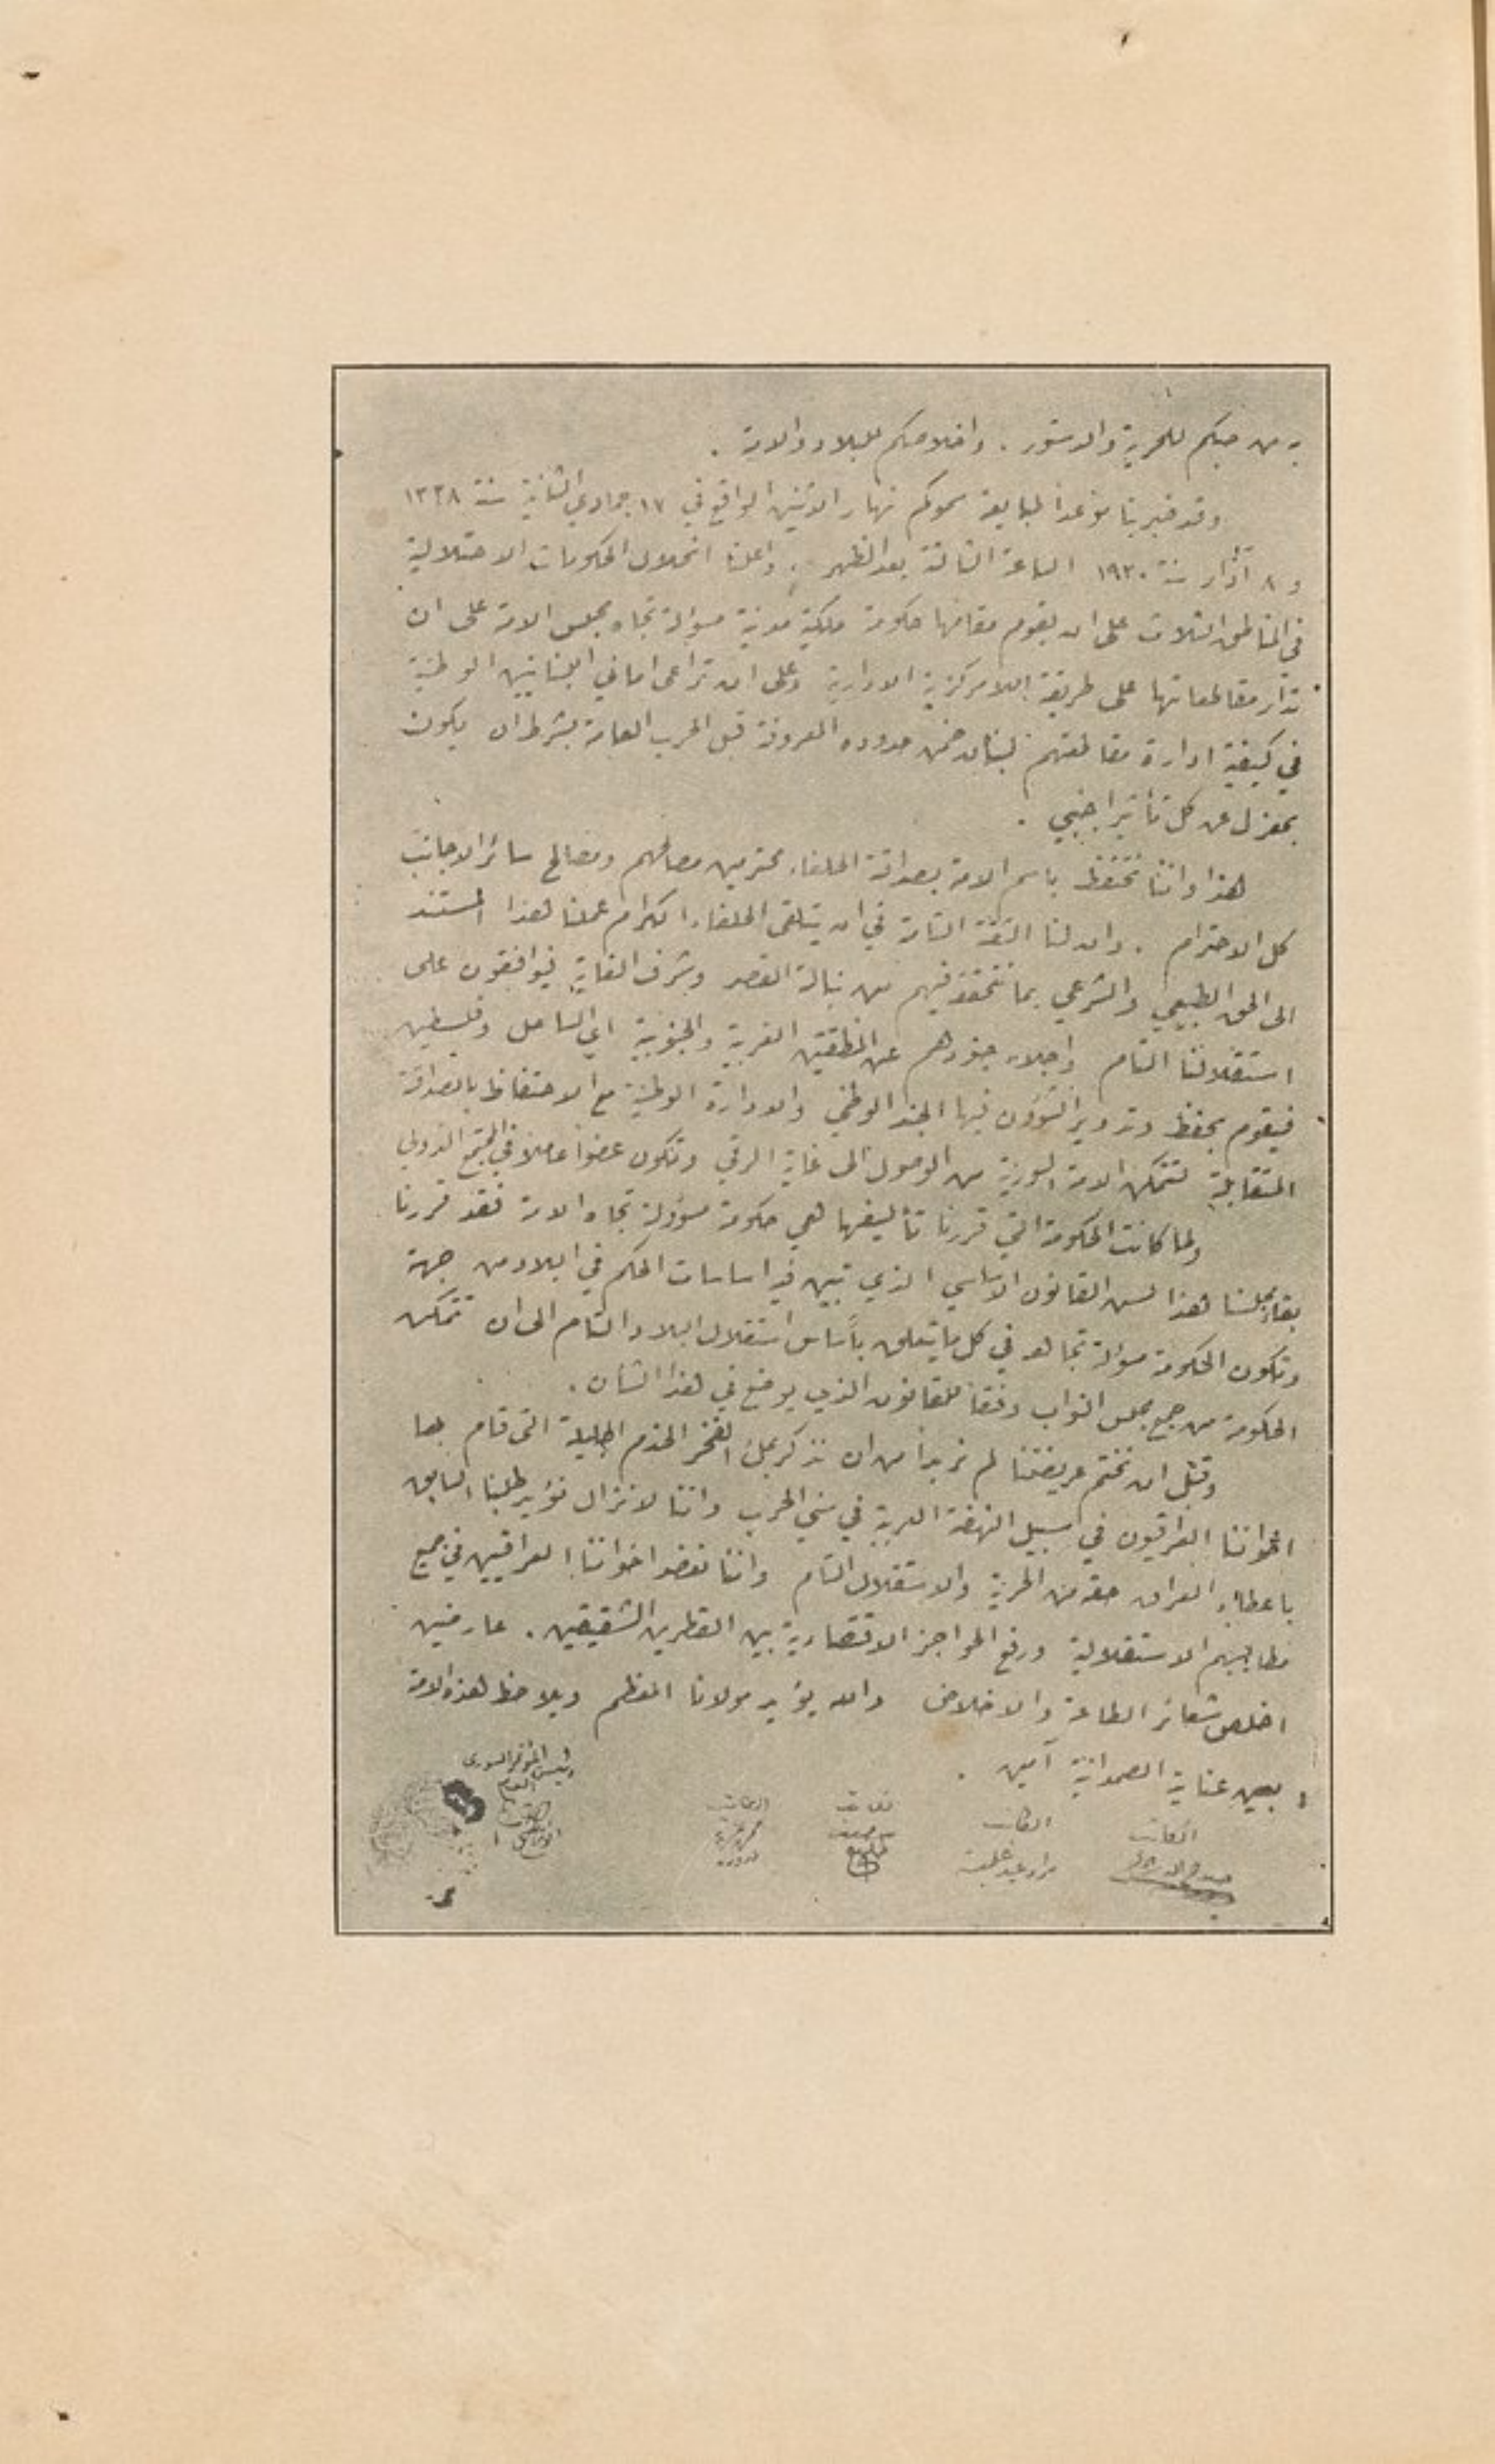 به من حبكم للحرية والدستور . واخلاصكم للبلاد والامة .
وقد ضربنا موعداً لمبايعة سموكم نهار الاثنين الواقع في ١٧ جمادي الثانية سنة ١٣٣٨
و ٨ آذار سنة ١٩٢٠ الساعة الثالثة بعد الظهر . واعلنا انحلال الحكومات الاحتلالية
في المناطق الثلاث على ان يقوم مقامها حكومة ملكية مدنية مسؤلة تجاه مجلس الامة على ان
تدار مقاطعاتها على طريقة اللامركزية الادارية وعلى ان تراعى اماني اللبنانيين الوطنية
في كيفية ادارة مقاطعتهم لبنان ضمن حدوده المعروفة قبل الحرب العامة بشرط ان يكون
بمعزل عن كل تأثير اجنبي .
هذا واننا نحتفظ باسم الامة بصداقة الحلفاء محترمين مصالحهم ومصالح سائر الاجانب
كل الاحترام . وان لنا الثقة التامة في ان يتلقى الحلفاء الكرام عملنا هذا المستند
الى الحق الطبيعي والشرعي بما نتحققه فيهم من نبالة القصد وشرف الغاية فيوافقون على
استقلالنا التام واجلاء جنودهم عن المنطقتين الغربية والجنوبية اي الساحل وفلسطين
فيقوم بحفظ وتدوير الشؤون فيها الجند الوطني والادارة الوطنية مع الاحتفاظ بالصداقة
المتقابلة لتتمكن الامة السورية من الوصول الى غاية الرقي وتكون عضواً عاملا في المجتمع الدولي
ولما كانت الحكومة التي قررنا تأليفها هي حكومة مسؤولة تجاه الامة فقد قررنا
بقاء مجلسنا هذا لسن القانون الاساسي الذي تبين فيه اساسات الحكم في البلاد من جهة
وتكون الحكومة مسؤلة تجاهه في كل ما يتعلق بأساس استقلال البلاد التام الى ان تتمكن
الحكومة من جمع مجلس النواب وفقاً للقانون الذي يوضع في هذا الشان .
وقبل ان نختم عريضتنا لم نر بداً من ان نذكر بملء الفخر الخدم الجليلة التي قام بها
اخواننا العراقيون في سبيل النهضة العربية في سني الحرب واننا لا نزال نؤيد طلبنا السابق
باعطاء العراق حقه من الحرية والاستقلال التام واننا نعضد اخواننا العراقيين في جميع
مطاليبهم الاستقلالية ورفع الحواجز الاقتصادية بين القطرين الشقيقين . عارضين
اخلص شعائر الطاعة والاخلاص والله يؤيد مولانا المعظم ويلاحظ هذه الامة
بعين عناية الصمدانية آمين .
رئيس المؤتمر السوري
العام
الكاتب
الكاتب
الكاتب